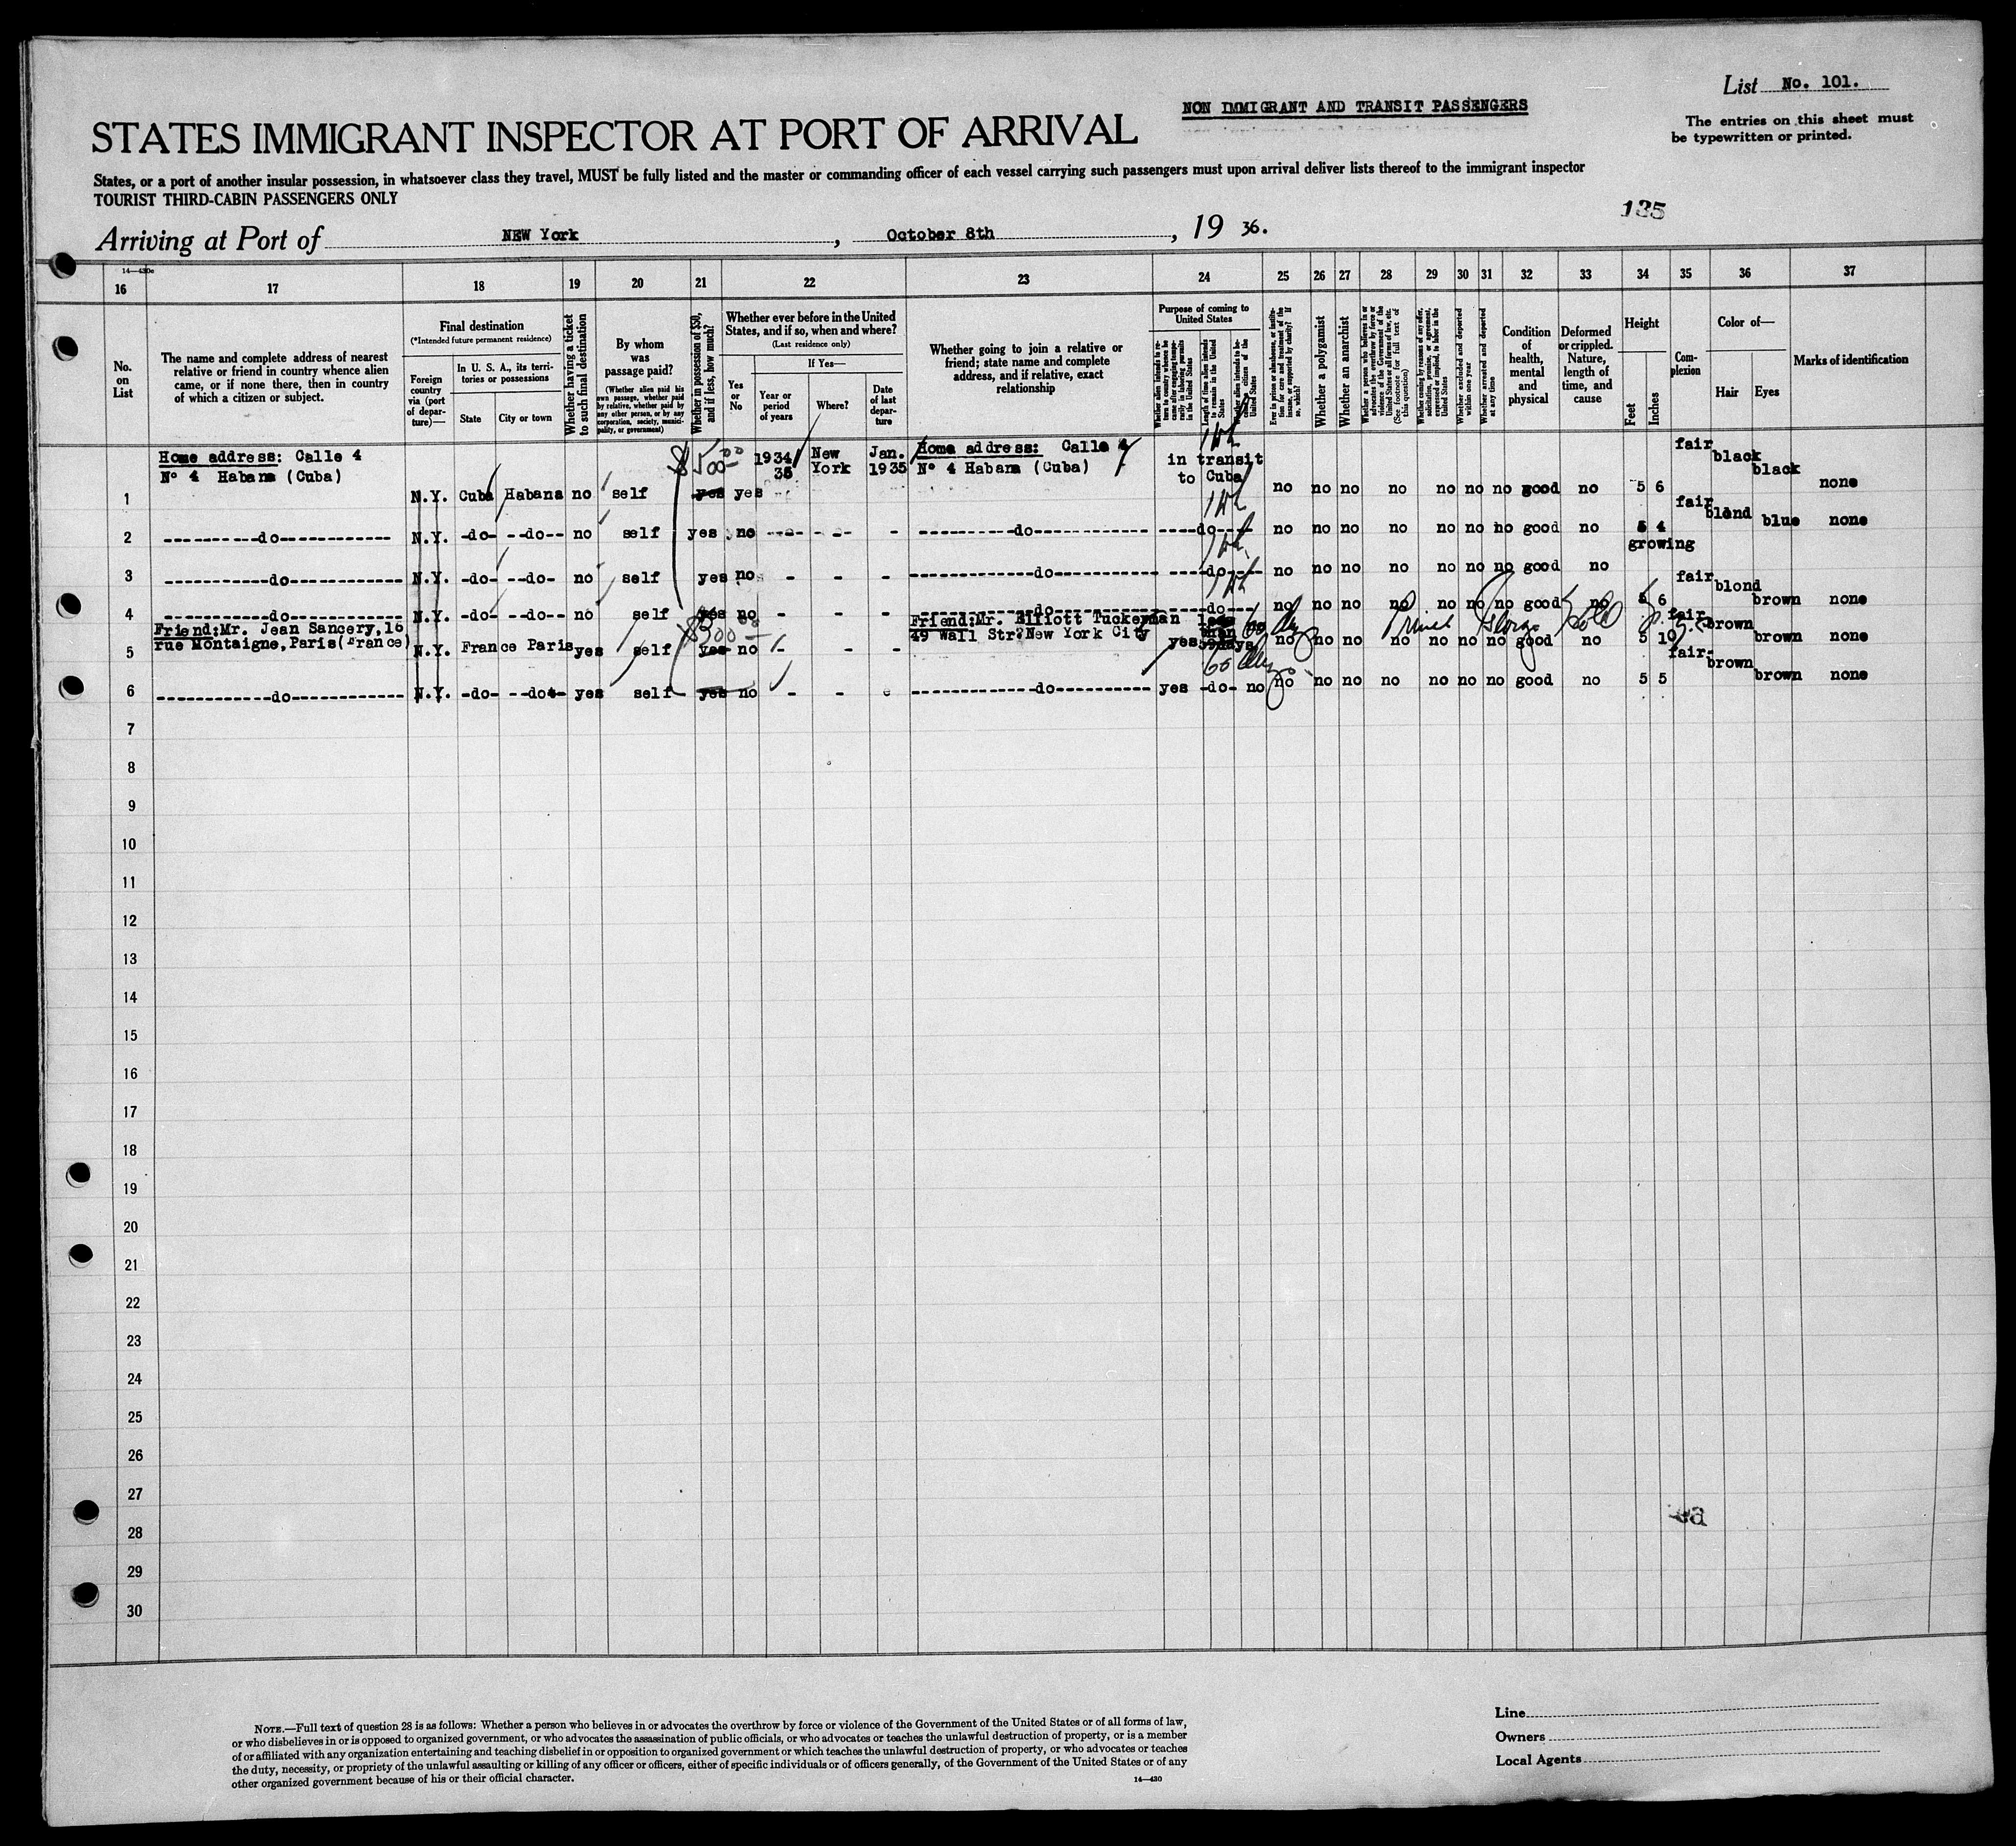 List No. 101.
NON IMMIGRANT AND TRANSIT PASSENGERS
The entries on this sheet must
be typewritten or printed.
STATES IMMIGRANT INSPECTOR AT PORT OF ARRIVAL
States, or a port of another insular possession, in whatsoever class they travel, MUST be fully listed and the master or commanding officer of each vessel carrying such passengers must upon arrival deliver lists thereof to the immigrant inspector
TOURIST THIRD-CABIN PASSENGERS ONLY
135
Arriving at Port of NEW York, October 8th, 19 36.
14—430e
16 17 18 19 20 21 22 23 24 25 26 27 28 29 30 31 32 33 34 35 36 37
No.
on
List
The name and complete address of nearest
relative or friend in country whence alien
came, or if none there, then in country
of which a citizen or subject.
Final destination
(*Intended future permanent residence)
Foreign
country
via (port
of depar-
ture)—
In U. S. A., its terri-
tories or possessions
State
City or town
Whether having a ticket
to such final destination
By whom
was
passage paid?
(Whether alien paid his
own passage, whether paid
by relative, whether paid by
any other person, or by any
corporation, society, munici-
pality, or government)
Whether in possession of $50,
and if less, how much?
Whether ever before in the United
States, and if so, when and where?
(Last residence only)
Yes
or
No
If Yes—
Year or
period
of years
Where?
Date
of last
depar-
ture
Whether going to join a relative or
friend; state name and complete
address, and if relative, exact
relationship
Purpose of coming to
United States
Whether alien intends to re-
turn to country whence he
came after engaging tempo-
rarily in laboring pursuits
in the United States
Length of time alien intends
to remain in the United
States
Whether alien intends to be-
come a citizen of the
United States
Ever in prison or almshouse, or institu-
tion for care and treatment of the
insane, or supported by charity? If
so, which?
Whether a polygamist
Whether an anarchist
Whether a person who believes in or
advocates the overthrow by force or
violence of the Government of the
United States or all forms of law, etc.
(See footnote for full text of
this question)
Whether coming by reason of any offer,
solicitation, promise, or agreement,
expressed or implied, to labor in the
United States
Whether excluded and deported
within one year
Whether arrested and deported
at any time
Condition
of
health,
mental
and
physical
Deformed
or crippled.
Nature,
length of
time, and
cause
Height
Feet
Inches
Com-
plexion
Color of—
Hair
Eyes
Marks of identification
Home address: Calle 4
Nº 4 Habana (Cuba)
1 N.Y. Cuba Habana no self yes yes 1934 35 New York Jan. 1935 Home address: Calle 4
Nº 4 Habana (Cuba) in transit to Cuba no no no no no no no good no 5 6 fair black black none
$500.00
2 ----------do------------ N.Y. -do- --do-- no self yes no ---- - -- - ----------do------------ ----do---- no no no no no no no good no 5 4 fair blond blue none
3 ------------do------------ N.Y. -do- --do- no self yes no - - - -------------do------------ ----do---- no no no no no no no good no growing
4 ------------do------------ N.Y. -do- --do-- no self yes no - - - ------------do------------ ----do--- no no no no no no no good no 5 6 fair blond brown none
Friend:Mr. Jean Sancery,16
rue Montaigne,Paris(France)
5 N.Y. France Paris yes self yes no - - - Friend:Mr. Elliott Tuckerman
49 Wall Str. New York City yes less than 59days no no no no no no no good no 5 10 fair- brown brown none
$300.00
60 dys
6 ------------do------------ N.Y. -do- --do- yes self yes no - - - ------------do---------- yes -do- no no no no no no no no good no 5 5 fair- brown brown none
60 dys
7
8
9
10
11
12
13
14
15
16
17
18
19
20
21
22
23
24
25
26
27
28
29
30
NOTE.—Full text of question 28 is as follows: Whether a person who believes in or advocates the overthrow by force or violence of the Government of the United States or of all forms of law,
or who disbelieves in or is opposed to organized government, or who advocates the assassination of public officials, or who advocates or teaches the unlawful destruction of property, or is a member
of or affiliated with any organization entertaining and teaching disbelief in or opposition to organized government or which teaches the unlawful destruction of property, or who advocates or teaches
the duty, necessity, or propriety of the unlawful assaulting or killing of any officer or officers, either of specific individuals or of officers generally, of the Government of the United States or of any
other organized government because of his or their official character.
14—430
Line
Owners
Local Agents